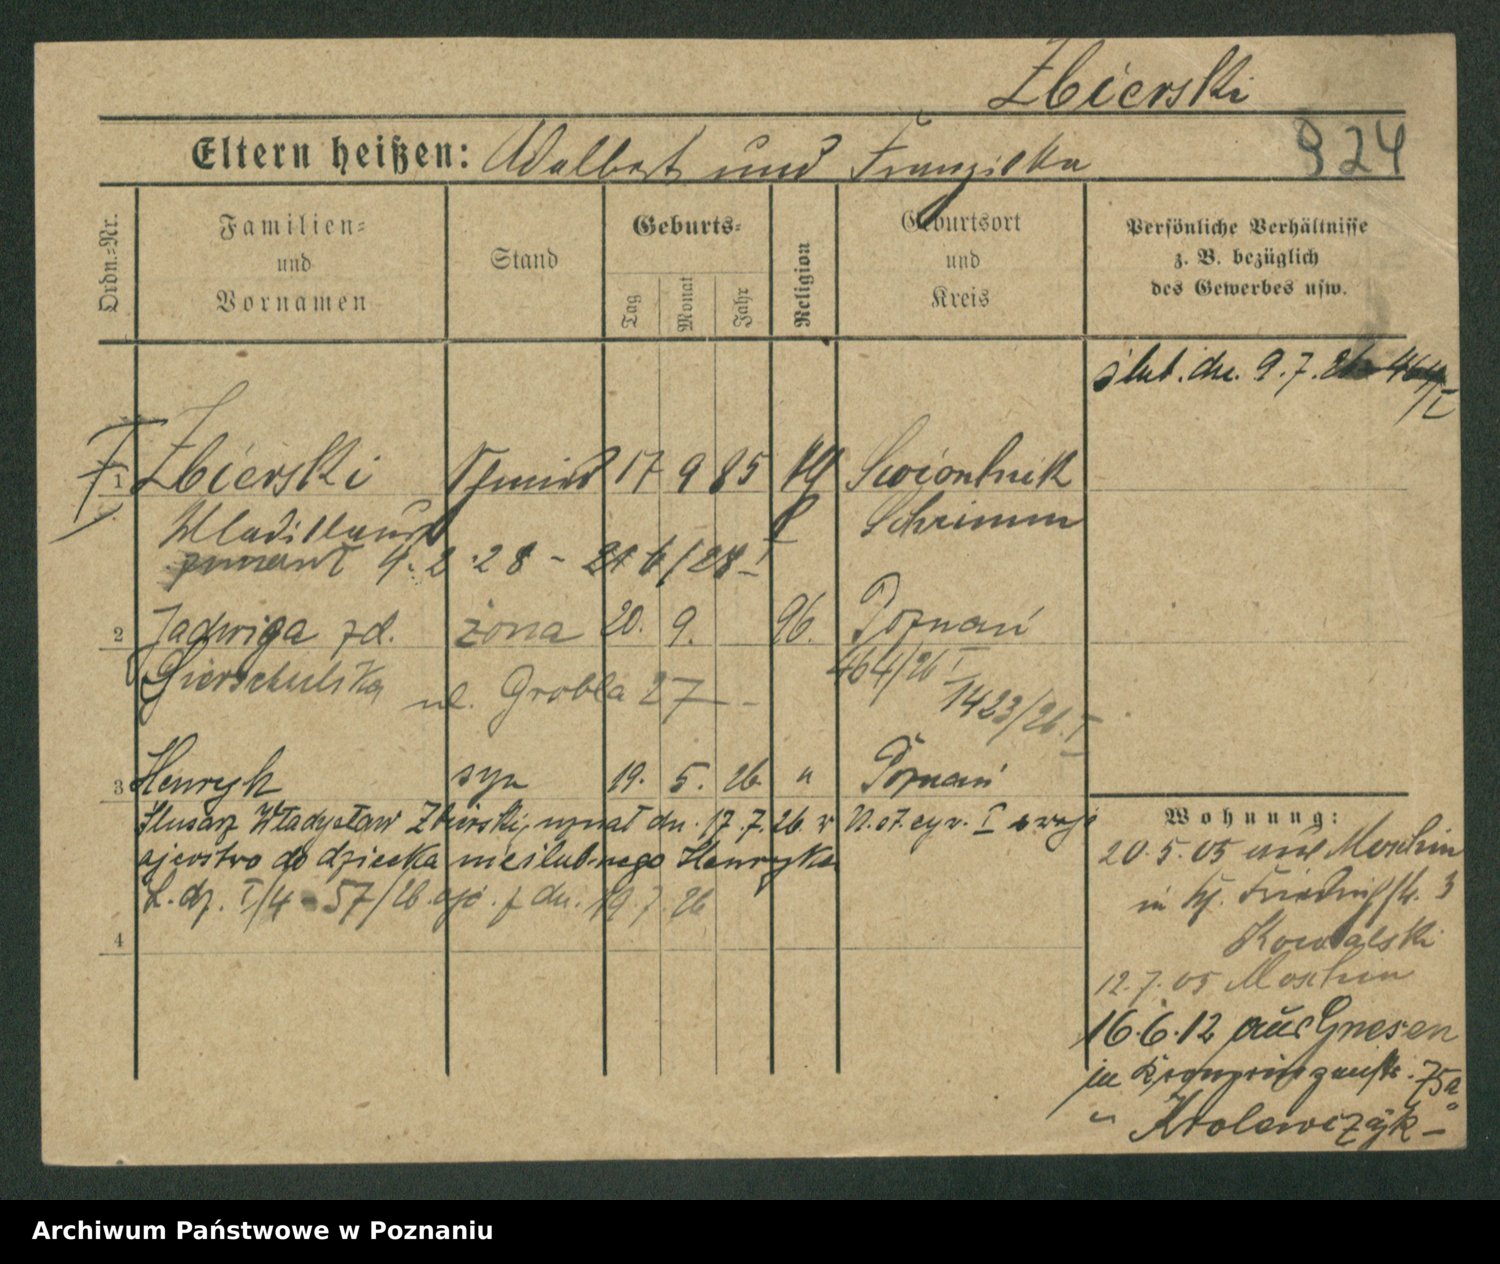 Zbierski
Eltern heißen: Adalbert und Franziska
924
Ordn.-Nr.
Familien- und Vornamen
Stand
Geburts-
Tag
Monat
Jahr
Religion
Geburtsort und Kreis
Persönliche Verhältnisse
z. B. bezüglich
des Gewerbes usw.
ślub. dn. 9.7.26 464/I
1 Zbierski Schmied 17 9 85 Swiontnik
Wladislaus Schrimm
9.2.28 -
2 Jadwiga zd. żona 20. 9. 96. Poznań
464/26 I
ul. Grobla 27
1423/26. I
3 Henryk syn 19. 5. 26 " Poznań
Ślusarz Władysław Zbierski, uznał dn. 17.7.26 w U. st. cyw. I swoje
ojcostwo do dziecka nieślubnego Henryka
L. dz. I/4 - 57/26 dn. 19.7.26
4
Wohnung:
20.5.05 aus Moschin
in 3
Kowalski
12.7.05 Moschin
16.6.12 aus Gnesen
in Kronprinzenstr. 75a
" Krolewczyk -
Archiwum Państwowe w Poznaniu